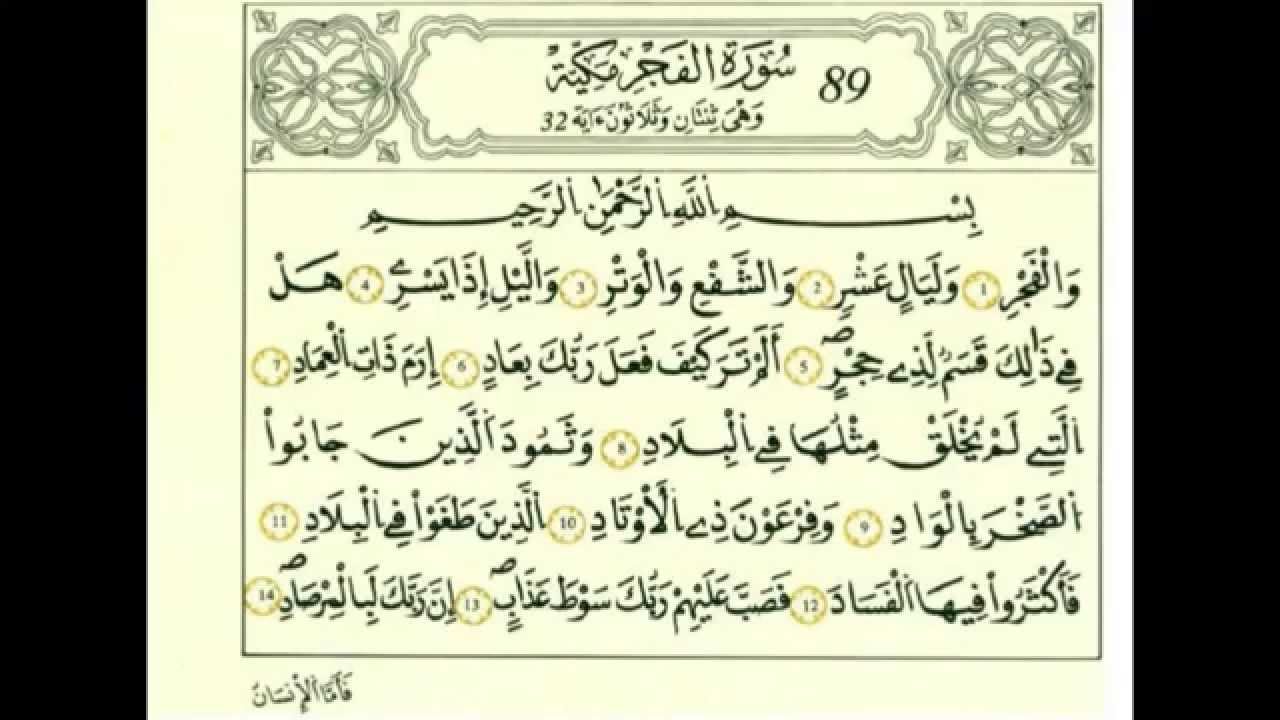 89 سُورَةُ الفَجْرِ مَكِّيَّةٌ
وَهْيَ ثِنْتَانِ وَثَلَاثُونَ ءَايَة 32
بِسْمِ اِللَّهِ اِلرَّحْمَٰنِ اِلرَّحِيمِ
وَالْفَجْرِ 1 وَلَيَالٍ عَشْرٍ 2 وَالشَّفْعِ وَالْوَتْرِ 3 وَالَّيْلِ إِذَا يَسْرِۦ 4 هَلْ
فِے ذَٰلِكَ قَسَمٌ لِّذِے حِجْرٍۖ 5 أَلَمْ تَرَ كَيْفَ فَعَلَ رَبُّكَ بِعَادٍ 6 إِرَمَ ذَاتِ اِلْعِمَادِ 7
اِلَّتِے لَمْ يُخْلَقْ مِثْلُهَا فِے اِلْبِلَادِ 8 وَثَمُودَ اَلَّذِينَ جَابُواْ
اُلصَّخْرَ بِالْوَادِ 9 وَفِرْعَوْنَ ذِے اِلْأَوْتَادِ 10 اِلَّذِينَ طَغَوْاْ فِے اِلْبِلَادِ 11
فَأَكْثَرُواْ فِيهَا اَلْفَسَادَ 12 فَصَبَّ عَلَيْهِمْ رَبُّكَ سَوْطَ عَذَابٍۖ 13 إِنَّ رَبَّكَ لَبِالْمِرْصَادِۖ 14
فَأَمَّا اَلْإِنسَانُ